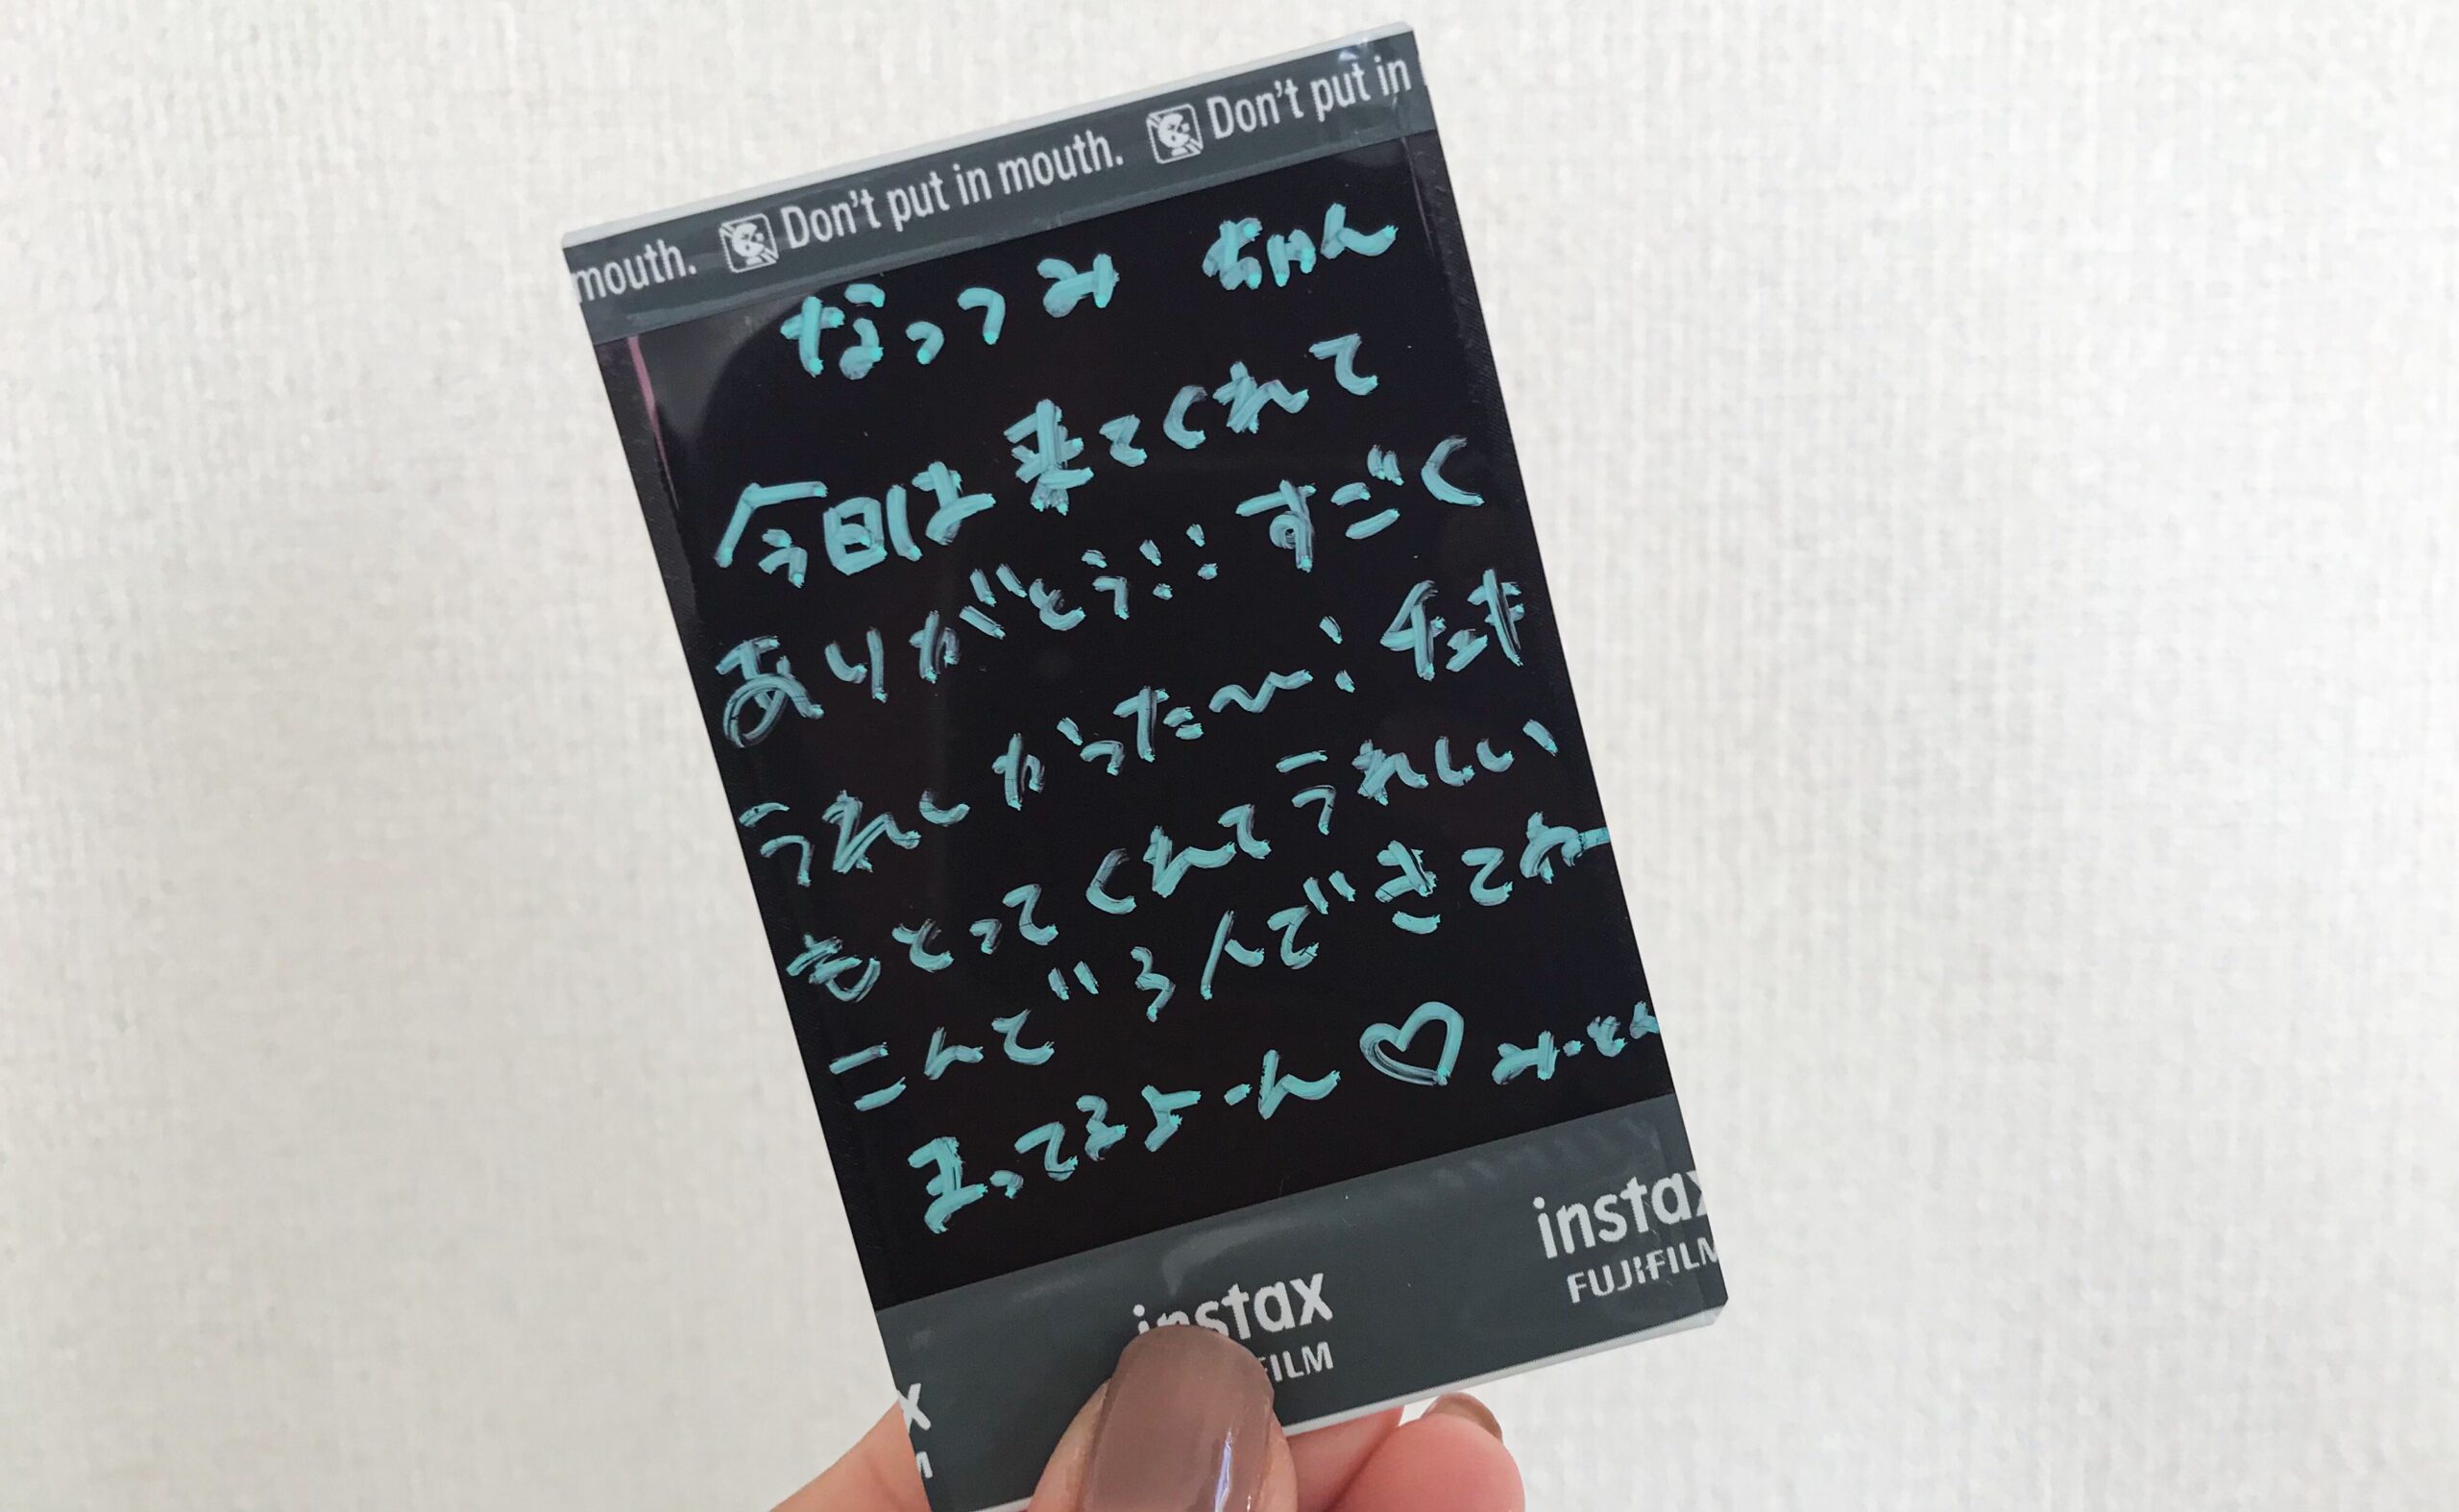 mouth. Don't put in mouth. Don't put in
なっつみ ちゃん
今日は 来てくれて
ありがとう!!! すごく
うれしかった〜! チェキ
もとってくれてうれしい
こんど 3人できてねー
まってるよーん♡
instax
FUJIFILM
instax
FILM
x